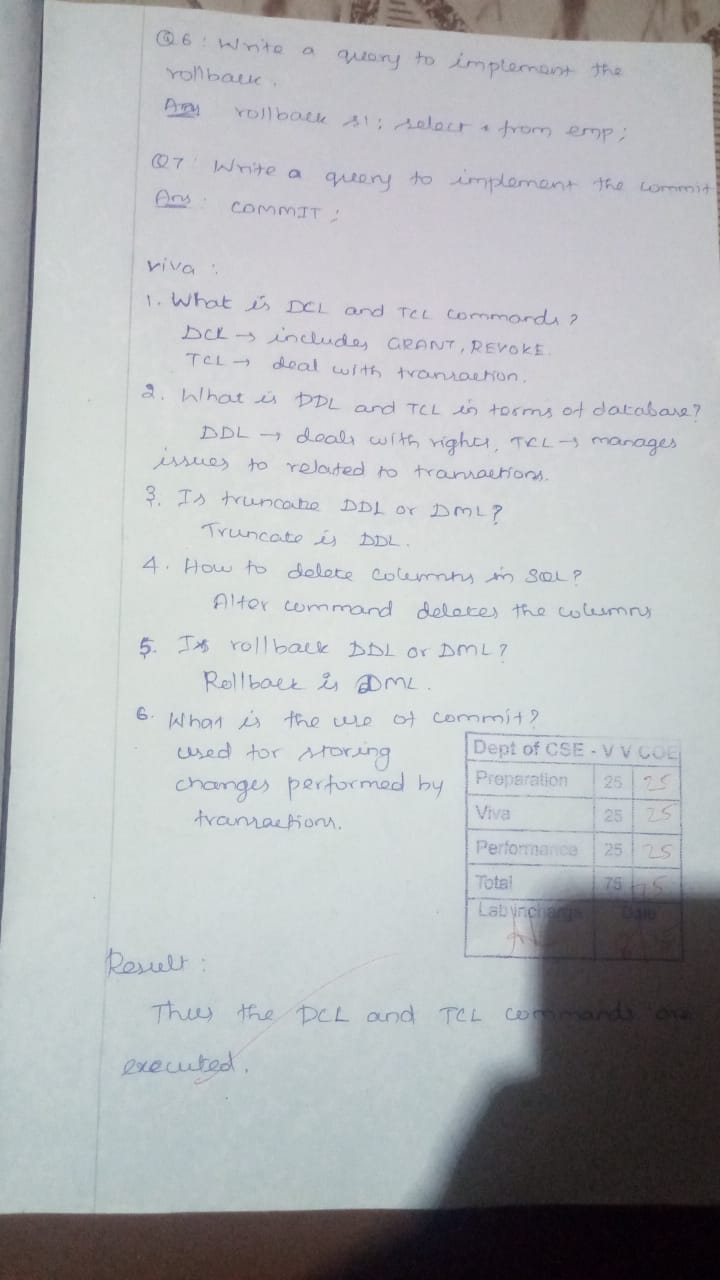 Q6: Write a query to implement the
rollback.
Ans rollback s1; select * from emp;
Q7: Write a query to implement the commit
Ans: COMMIT;
viva:
1. What is DCL and TCL commands?
DCL → includes GRANT, REVOKE.
TCL → deal with transaction.
2. What is DDL and TCL in terms of database?
DDL → deals with rights, TCL → manages
issues to related to transactions.
3. Is truncate DDL or DML?
Truncate is DDL.
4. How to delete columns in SQL?
Alter command deletes the columns
5. Is rollback DDL or DML?
Rollback is DML.
6. What is the use of commit?
used for storing
changes performed by
transactions.
Dept of CSE - V V COE
Preparation 25 25
Viva 25 25
Performance 25 25
Total 75 75
Lab incharge Date
Result:
Thus the DCL and TCL commands are
executed.